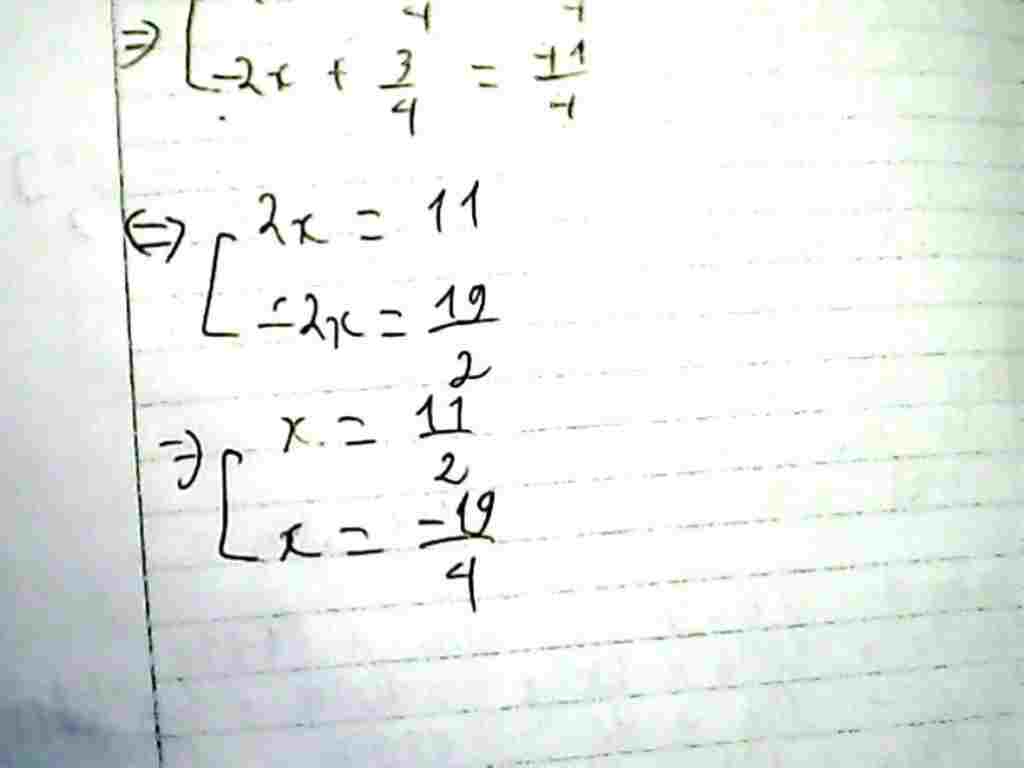 ⇒ [ -2x + 3/4 = 41/4
⇔ [ 2x = 11
-2x = 19/2
⇒ [ x = 11/2
x = -19/4